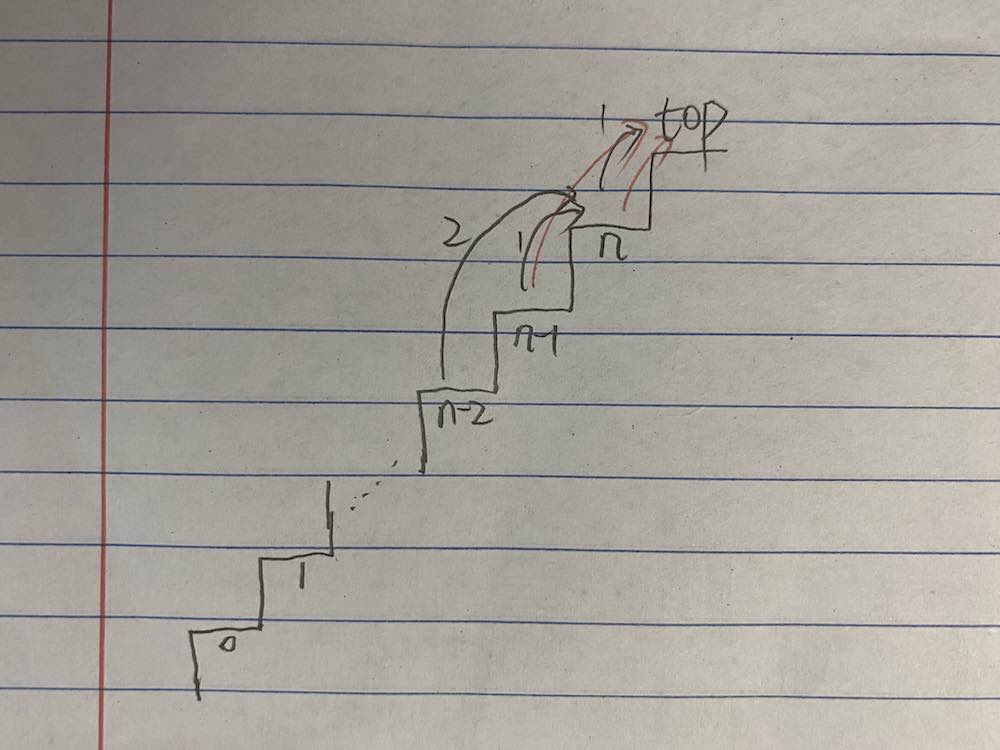 1 top
2 1 n
n-1
n-2
1
0